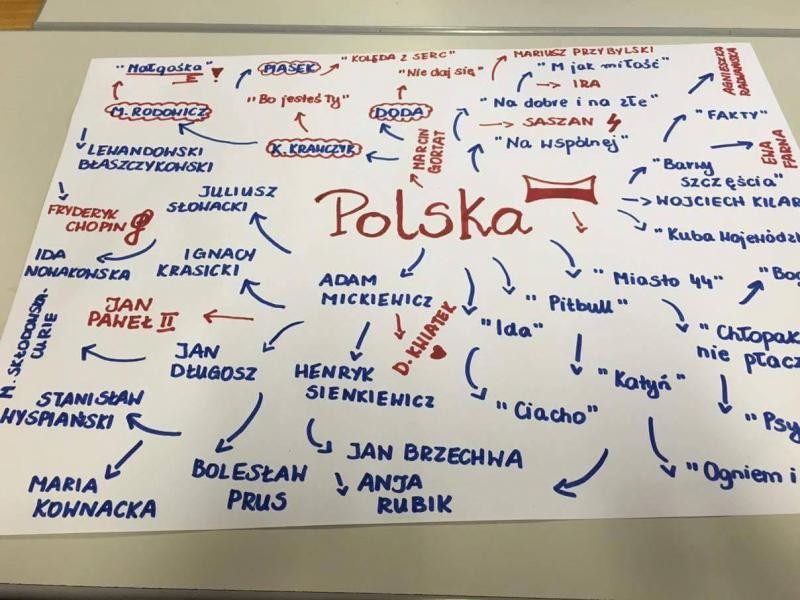 "Małgośka"
PIASEK
"KOLĘDA Z SERC"
MARIUSZ PRZYBYLSKI
AGNIESZKA
RADWAŃSKA
"Nie daj się"
"M jak miłość"
IRA
M. RODOWICZ
"Bo jesteś Ty"
DODA
"Na dobre i na złe"
SASZAN
"FAKTY"
K. KRAWCZYK
MARCIN
GORTAT
"Na wspólnej"
EWA
FARNA
LEWANDOWSKI
BŁASZCZYKOWSKI
"Barwy
szczęścia"
JULIUSZ
SŁOWACKI
Polska
WOJCIECH KILAR
FRYDERYK
CHOPIN
"Kuba Wojewódz
IDA
NOWAKOWSKA
IGNACY
KRASICKI
ADAM
MICKIEWICZ
"Miasto 44"
"Bog
"Pitbull"
JAN
PAWEŁ II
D. KWIATEK
"Ida"
"Chłopak
nie płacz
M. SKŁODOWSKA-
CURIE
JAN
DŁUGOSZ
HENRYK
SIENKIEWICZ
"Katyń"
"Ciacho"
"Psy
STANISŁAW
WYSPIAŃSKI
JAN BRZECHWA
"Ogniem i
BOLESŁAW
PRUS
ANJA
RUBIK
MARIA
KOWNACKA